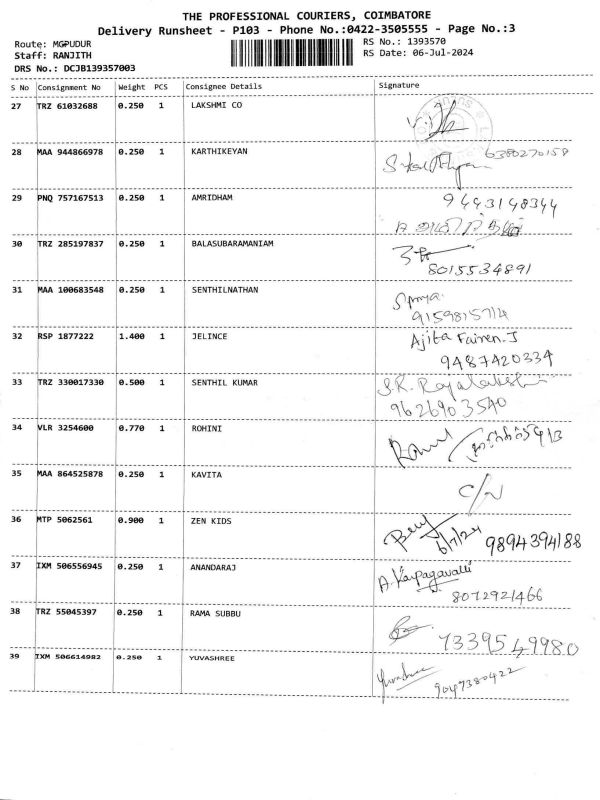 THE PROFESSIONAL COURIERS, COIMBATORE
Delivery Runsheet - P103 - Phone No.:0422-3505555 - Page No.:3
Route: MGPUDUR
RS No.: 1393570
Staff: RANJITH
RS Date: 06-Jul-2024
DRS No.: DCJB139357003
S No Consignment No Weight PCS Consignee Details Signature
27 TRZ 61032688 0.250 1 LAKSHMI CO
28 MAA 944866978 0.250 1 KARTHIKEYAN 6380270158
29 PNQ 757167513 0.250 1 AMRIDHAM 9443148344
30 TRZ 285197837 0.250 1 BALASUBARAMANIAM
8015534891
31 MAA 100683548 0.250 1 SENTHILNATHAN
9159815714
32 RSP 1877222 1.400 1 JELINCE Ajita
9487420334
33 TRZ 330017330 0.500 1 SENTHIL KUMAR S.R. Rajalakshmi
9626903540
34 VLR 3254600 0.770 1 ROHINI
35 MAA 864525878 0.250 1 KAVITA
C/N
36 MTP 5062561 0.900 1 ZEN KIDS
6/7/24 9894394188
37 IXM 506556945 0.250 1 ANANDARAJ A. Karpagavalli
8072921466
38 TRZ 55045397 0.250 1 RAMA SUBBU
7339549980
39 IXM 506614982 0.250 1 YUVASHREE
9047380422